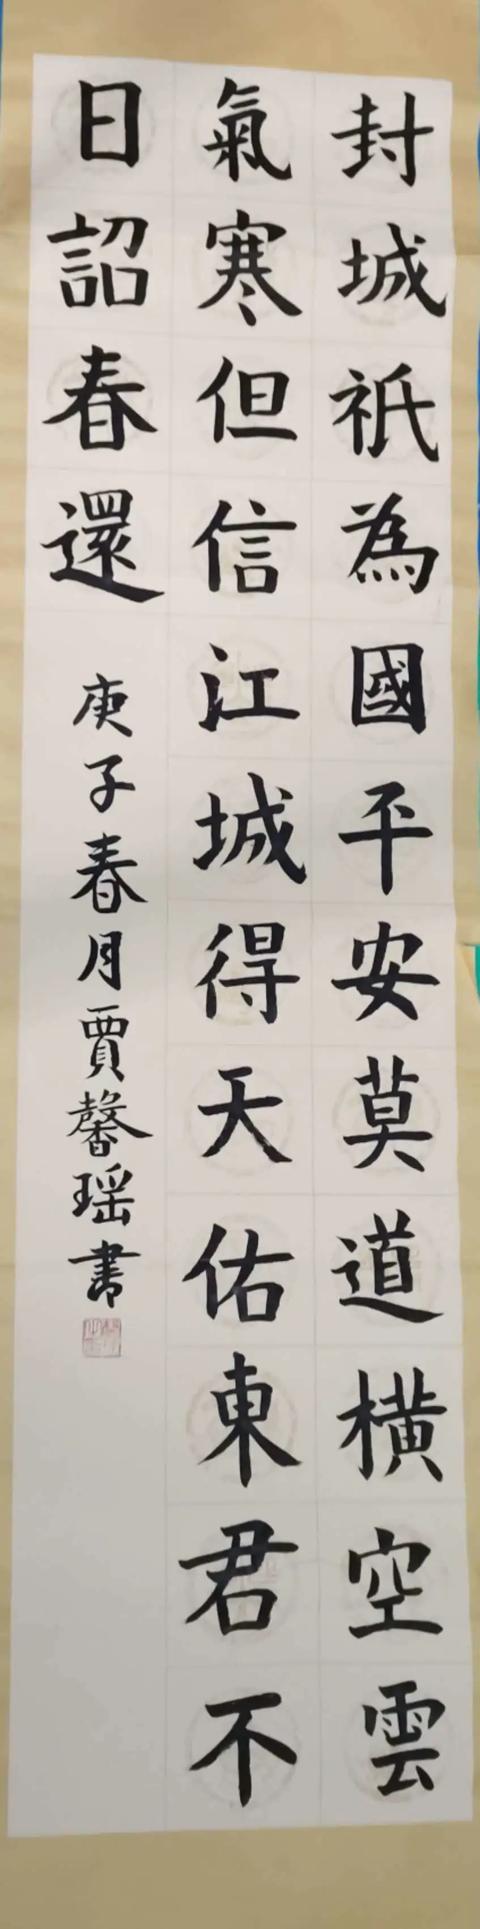 封城祇為國平安莫道橫空雲
氣寒但信江城得天佑東君不
日詔春還
庚子春月賈馨瑶書